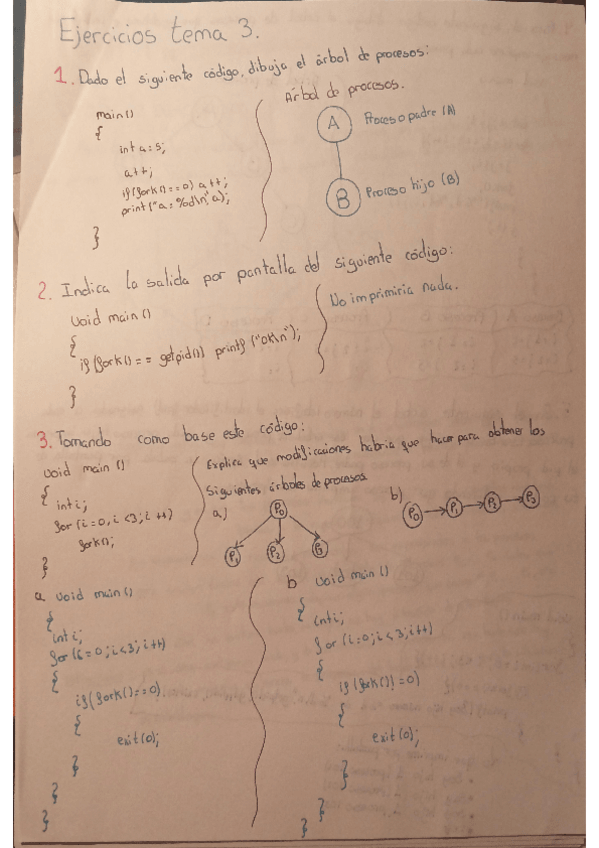 Ejercicios tema 3.
1. Dado el siguiente código, dibuja el árbol de procesos:
main()
{
int a=5;
a++;
if(fork()==0) a++;
print("a=%d\n",a);
}
Árbol de procesos.
A Proceso padre (A)
B Proceso hijo (B)
2. Indica la salida por pantalla del siguiente código:
void main()
{
if(fork()== getpid()) printf("ok\n");
}
No imprimiria nada.
3. Tomando como base este código:
void main()
{
int i;
for(i=0,i<3;i++)
fork();
}
Explica que modificaciones habria que hacer para obtener los
siguientes árboles de procesos
a)
P0
P1 P2 P3
b)
P0 P1 P2 P3
a void main()
{
int i;
for(i=0;i<3;i++)
{
if(fork()==0)
{
exit(0);
}
}
}
b void main()
{
int i;
for(i=0;i<3;i++)
{
if(fork()!=0)
{
exit(0);
}
}
}